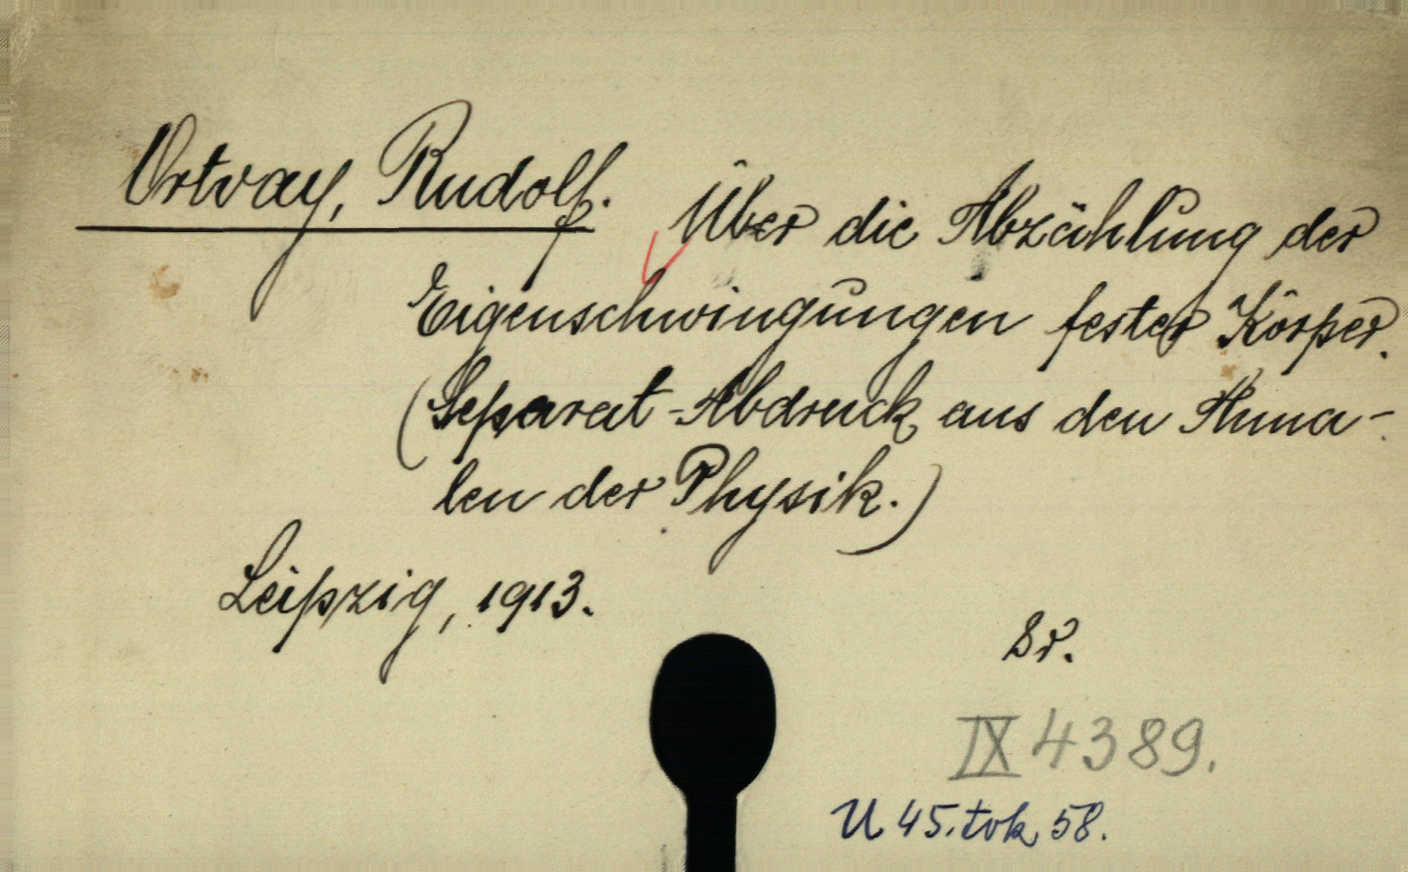 Ortvay, Rudolf.
Über die Abzählung der
Eigenschwingungen fester Körper.
(Separat-Abdruck aus den Anna-
len der Physik.)
Leipzig, 1913.
8r.
IX 4389.
U 45. tok 58.